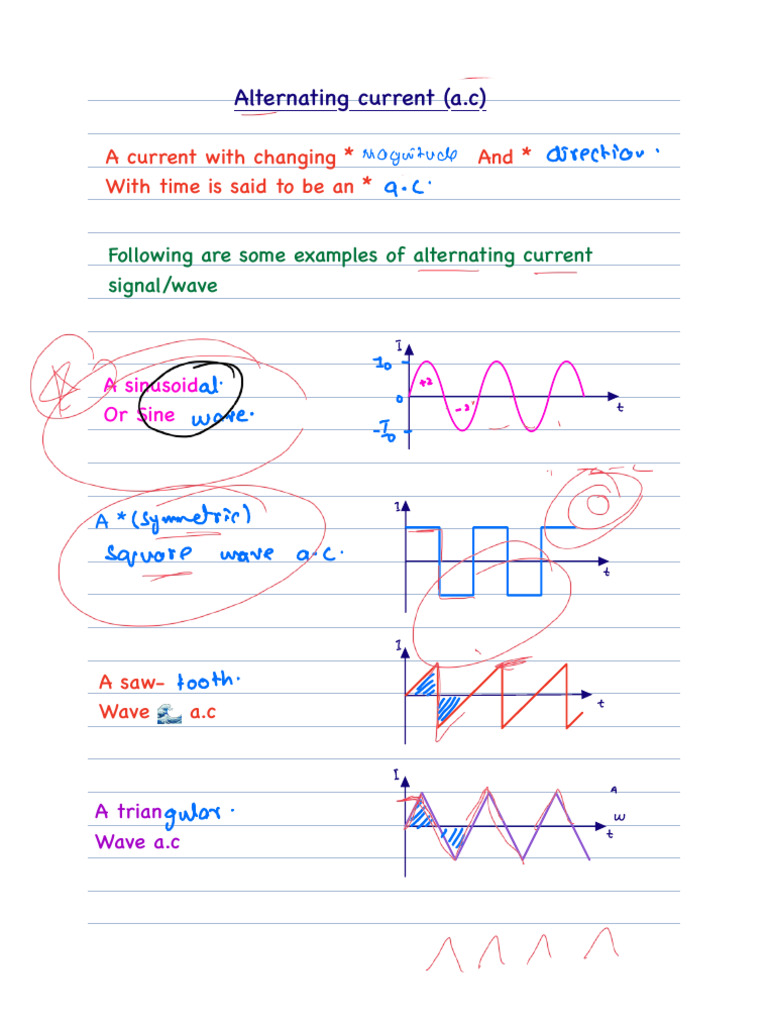 Alternating current (a.c)
A current with changing * Magnitude And * direction.
With time is said to be an * a.c.
Following are some examples of alternating current
signal/wave
A sinusoidal.
Or Sine wave.
I
I0
+2
0
-2
-I0
t
A * (symmetric)
Square wave a.c.
I
t
A saw- tooth.
Wave 🌊 a.c
I
t
A triangular.
Wave a.c
I
A
W
t